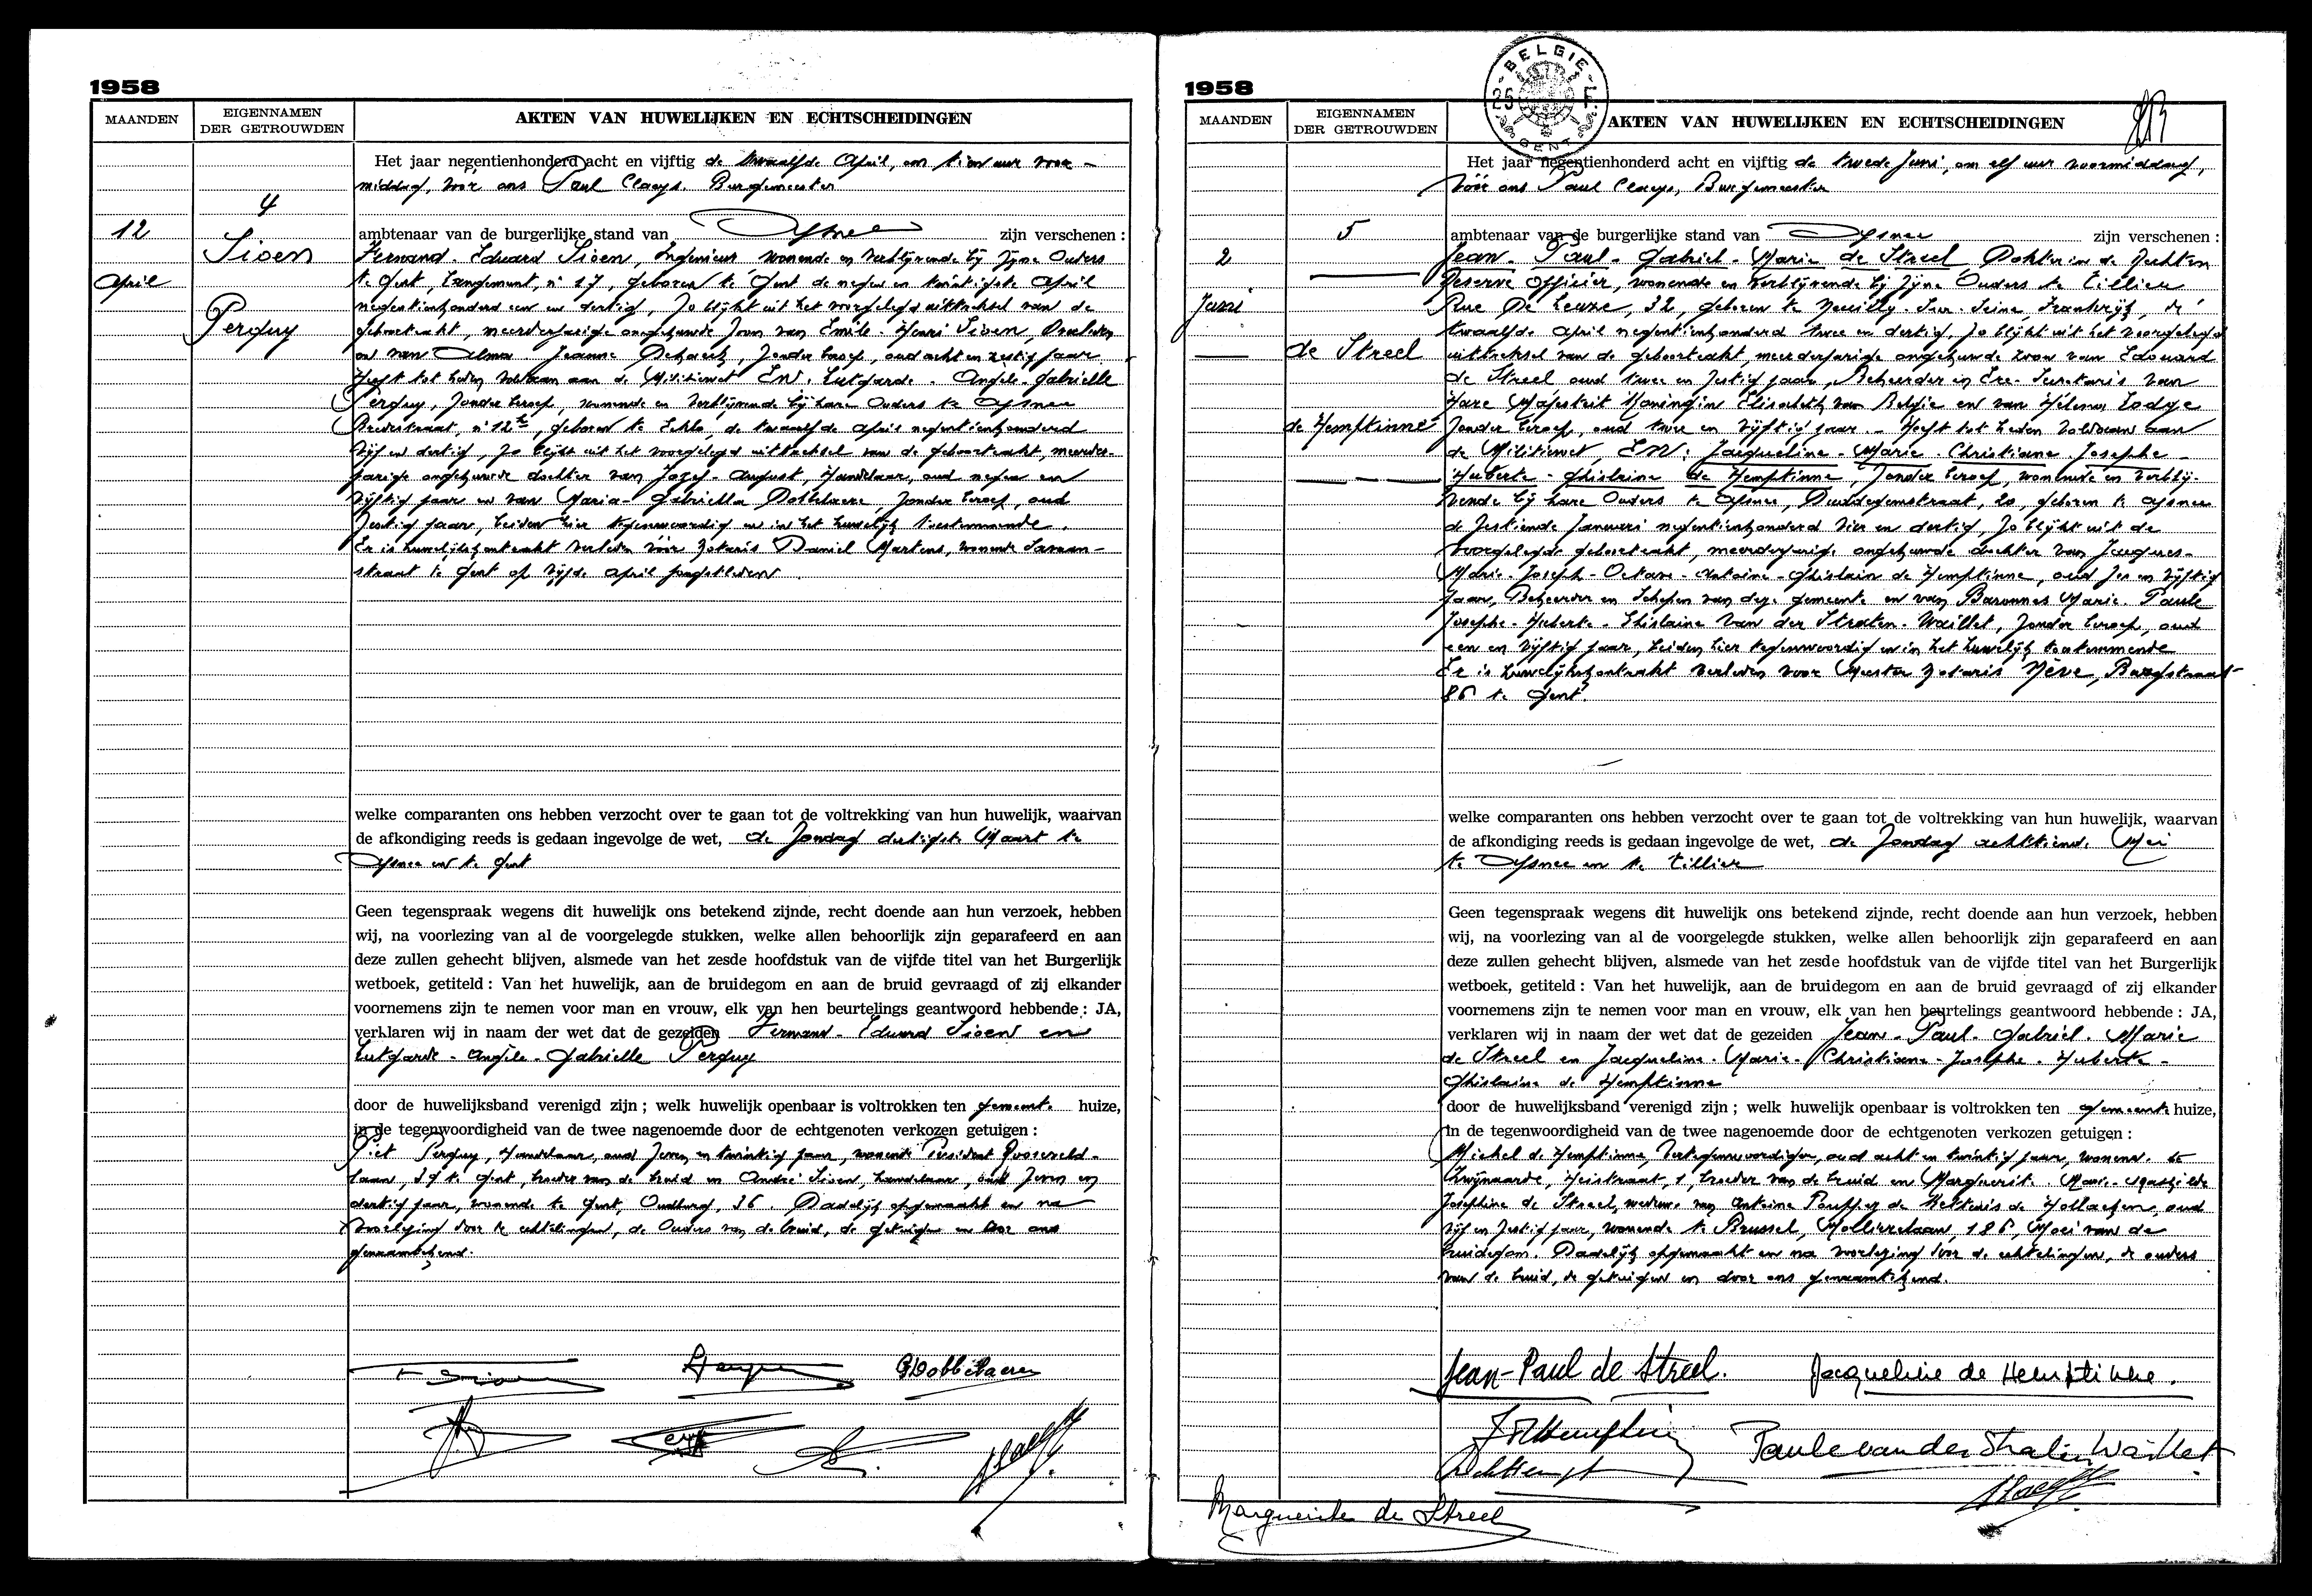 1958
MAANDEN
EIGENNAMEN
DER GETROUWDEN
AKTEN VAN HUWELIJKEN EN ECHTSCHEIDINGEN
4
12
April
Sioen
Perquy
Het jaar negentienhonderd acht en vijftig de twaalfde April, om tien uur voor-
middag, vóór ons Paul Claeys, Burgemeester
ambtenaar van de burgerlijke stand van Afsnee zijn verschenen :
Fernand - Eduard Sioen, Ingenieur wonende en verblijvende bij zijne Ouders
te Gent, Langemunt, n° 17, geboren te Gent de negen en twintigste April
negentienhonderd een en dertig, zo blijkt uit het voorgelegd uittreksel van de
geboorteakt, meerderjarige ongehuwde zoon van Emile - Henri Sioen, Overleden
en van Alma - Jeanne , zonder beroep, oud acht en zestig jaar
Heeft tot heden voldaan aan de Militiewet EN. Lutgarde - Angèle - Gabrielle
Perquy, zonder beroep, wonende en verblijvende bij hare Ouders te Afsnee
n° 12, geboren te Eeklo, de twaalfde April negentienhonderd
vijf en dertig, zo blijkt uit het voorgelegd uittreksel van de geboorteakt, meerder-
jarige ongehuwde dochter van Jozef - August, Handelaar, oud negen en
vijftig jaar en van Maria - Gabriella Dobbelaere, zonder beroep, oud
zestig jaar, beiden hier tegenwoordig en in het huwelijk toestemmende.
Er is huwelijkskontrakt verleden vóór Notaris Daniel Martens, wonende Savaan-
straat te Gent op vijfde April jongstleden
welke comparanten ons hebben verzocht over te gaan tot de voltrekking van hun huwelijk, waarvan
de afkondiging reeds is gedaan ingevolge de wet, de Zondag dertigste Maart te
Afsnee en te Gent
Geen tegenspraak wegens dit huwelijk ons betekend zijnde, recht doende aan hun verzoek, hebben
wij, na voorlezing van al de voorgelegde stukken, welke allen behoorlijk zijn geparafeerd en aan
deze zullen gehecht blijven, alsmede van het zesde hoofdstuk van de vijfde titel van het Burgerlijk
wetboek, getiteld : Van het huwelijk, aan de bruidegom en aan de bruid gevraagd of zij elkander
voornemens zijn te nemen voor man en vrouw, elk van hen beurtelings geantwoord hebbende : JA,
verklaren wij in naam der wet dat de gezeiden Fernand - Eduard Sioen en
Lutgarde - Angèle - Gabrielle Perquy
door de huwelijksband verenigd zijn ; welk huwelijk openbaar is voltrokken ten gemeente huize,
in de tegenwoordigheid van de twee nagenoemde door de echtgenoten verkozen getuigen :
Piet Perquy, Handelaar, oud zeven en twintig jaar, wonende President Rooseveld-
laan, te Gent, broeder van de bruid en André Sioen, handelaar, oud zeven en
dertig jaar, wonende te Gent, Oudburg, 36. Dadelijk opgemaakt en na
voorlezing door de echtelingen, de Ouders van de bruid, de getuigen en door ons
genaamtekend.
GDobbelaere
1958
BELGIE
25 F
GENT
MAANDEN
EIGENNAMEN
DER GETROUWDEN
AKTEN VAN HUWELIJKEN EN ECHTSCHEIDINGEN
5
2
Juni
de Streel
de Hemptinne
Het jaar negentienhonderd acht en vijftig de tweede Juni, om elf uur voormiddag,
vóór ons Paul Claeys, Burgemeester
ambtenaar van de burgerlijke stand van Afsnee zijn verschenen :
Jean - Paul - Gabriel - Marie de Streel Dokter in de Rechten
Reserve Officier, wonende en verblijvende bij zijne Ouders te Tillier
Rue De Leuze, 32, geboren te Neuilly - Sur - Seine, Frankrijk, de
twaalfde April negentienhonderd twee en dertig, zo blijkt uit het voorgelegd
uittreksel van de geboorteakt, meerderjarige ongehuwde zoon van Edouard
de Streel oud twee en zestig jaar, Beheerder en Ere-Sekretaris van
Hare Majesteit Koningin Elisabeth van Belgie en van Hélena Lodge
zonder beroep, oud twee en vijftig jaar. - Heeft tot heden voldaan aan
de Militiewet, EN: Jacqueline - Marie - Christiane - Josephe -
Huberte - Ghislaine de Hemptinne, zonder beroep, wonende en verblij-
vende bij hare Ouders te Afsnee, Duddegemstraat, 20, geboren te Afsnee
de zestiende Januari negentienhonderd vier en dertig, zo blijkt uit de
voorgelegde geboorteakt, meerderjarige ongehuwde dochter van Jacques -
Marie - Joseph - Octave - Antoine - Ghislain de Hemptinne, oud zes en vijftig
jaar, Beheerder en Schepen van deze gemeente en van Baronnes Marie - Paule
Josephe - Huberte - Ghislaine Van der Straten - Waillet, zonder beroep, oud
een en vijftig jaar, beiden hier tegenwoordig en in het huwelijk toestemmende
Er is huwelijkskontrakt verleden voor Meester Notaris Nève, Burgstraat
86 te Gent.
welke comparanten ons hebben verzocht over te gaan tot de voltrekking van hun huwelijk, waarvan
de afkondiging reeds is gedaan ingevolge de wet, de Zondag achttiende Mei
te Afsnee en te Tillier
Geen tegenspraak wegens dit huwelijk ons betekend zijnde, recht doende aan hun verzoek, hebben
wij, na voorlezing van al de voorgelegde stukken, welke allen behoorlijk zijn geparafeerd en aan
deze zullen gehecht blijven, alsmede van het zesde hoofdstuk van de vijfde titel van het Burgerlijk
wetboek, getiteld : Van het huwelijk, aan de bruidegom en aan de bruid gevraagd of zij elkander
voornemens zijn te nemen voor man en vrouw, elk van hen beurtelings geantwoord hebbende : JA,
verklaren wij in naam der wet dat de gezeiden Jean - Paul - Gabriel - Marie
de Streel en Jacqueline - Marie - Christiane - Josephe - Huberte -
Ghislaine de Hemptinne
door de huwelijksband verenigd zijn ; welk huwelijk openbaar is voltrokken ten gemeente huize,
in de tegenwoordigheid van de twee nagenoemde door de echtgenoten verkozen getuigen :
Michel de Hemptinne, Vertegenwoordiger, oud acht en twintig jaar, wonende te
Zwijnaarde, Heistraat, 1, broeder van de bruid en Marguerite - Marie - Mathilde
Josephine de Streel, weduwe van Antoine de Kettenis de Hollaeken, oud
vijf en zestig jaar, wonende te Brussel, Molierelaan, 186, Moei van de
bruidegom. Dadelijk opgemaakt en na voorlezing door de echtelingen, de ouders
van de bruid, de getuigen en door ons genaamtekend.
Jean-Paul de Streel.
Jacqueline de Hemptinne.
Paule van der Straten Waillet
Marguerite de Streel